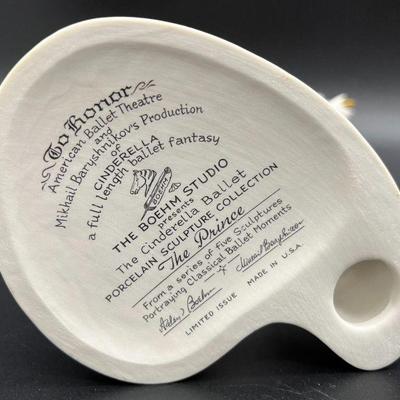 To Honor
American Ballet Theatre
and
Mikhail Baryshnikov's Production
of
CINDERELLA
a full length ballet fantasy
BOEHM
THE BOEHM STUDIO
presents
The Cinderella Ballet
PORCELAIN SCULPTURE COLLECTION
The Prince
From a series of Five Sculptures
Portraying Classical Ballet Moments
Helen F. Boehm
Mikhail Baryshnikov
LIMITED ISSUE MADE IN U.S.A.